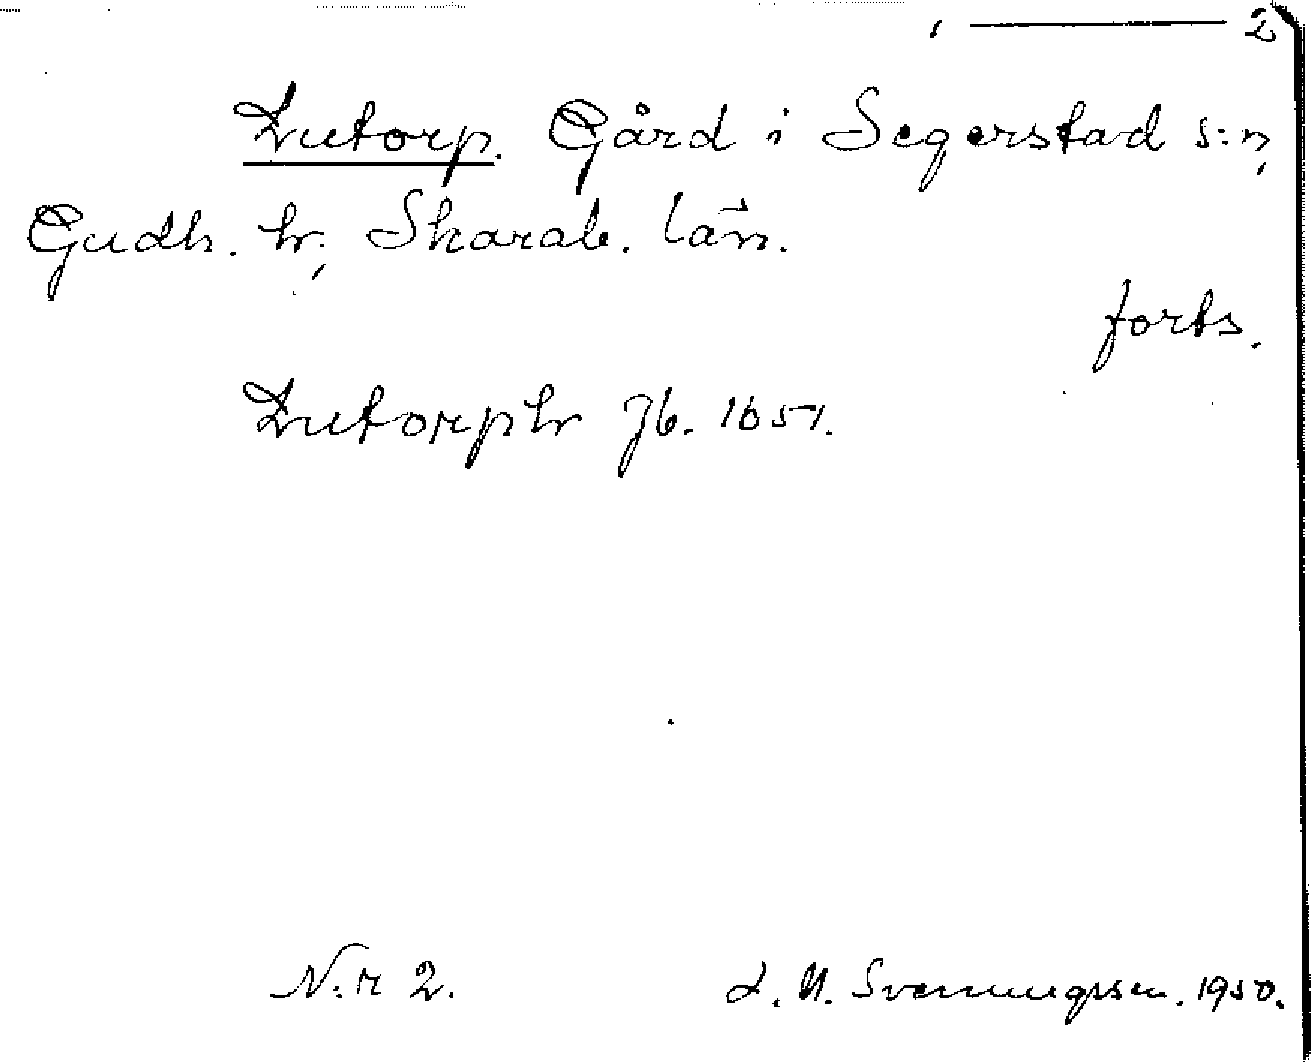 , ——— 2
Lutorp. Gård i Segerstad s:n,
Gudh. hr, Skarab. län.
forts.
Lutorph Jb. 1651.
N:r 2. J. M. Svenningsson. 1950.